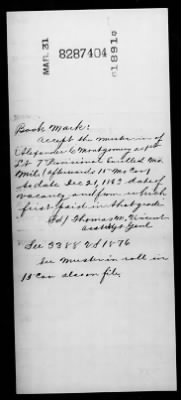 MAR. 31
8287404
1891
Book Mark:
Accept the muster in of
Alexander C Montgomery as 1st
Lt 7" Provisional Enrolled Mo
Mil (afterwards 15" Mo Cav)
to date Dec 21, 1863 date of
vacancy and from which
first paid in that grade
Sd/ Thomas M. Vincent
Asst Adjt Genl
See 3388 1876
See Muster in roll in
15 Cav also on file